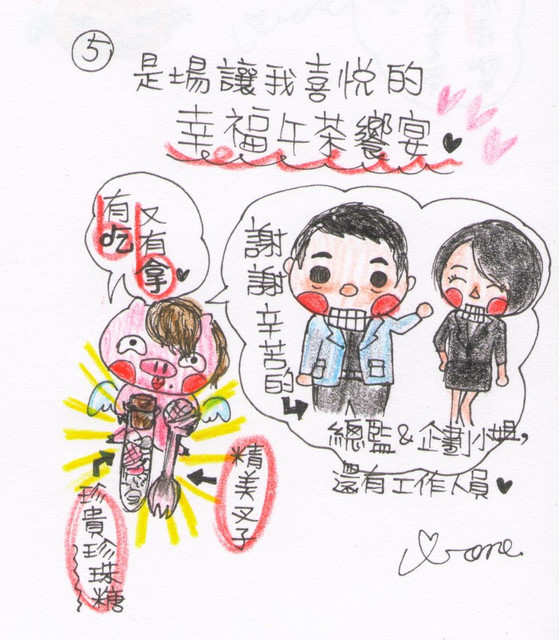 ⑤
是場讓我喜悅的
幸福午茶饗宴♥
有吃
又有拿♥
謝謝辛苦的
總監&企劃小姐,
還有工作人員♥
精美叉子
珍貴珍珠糖